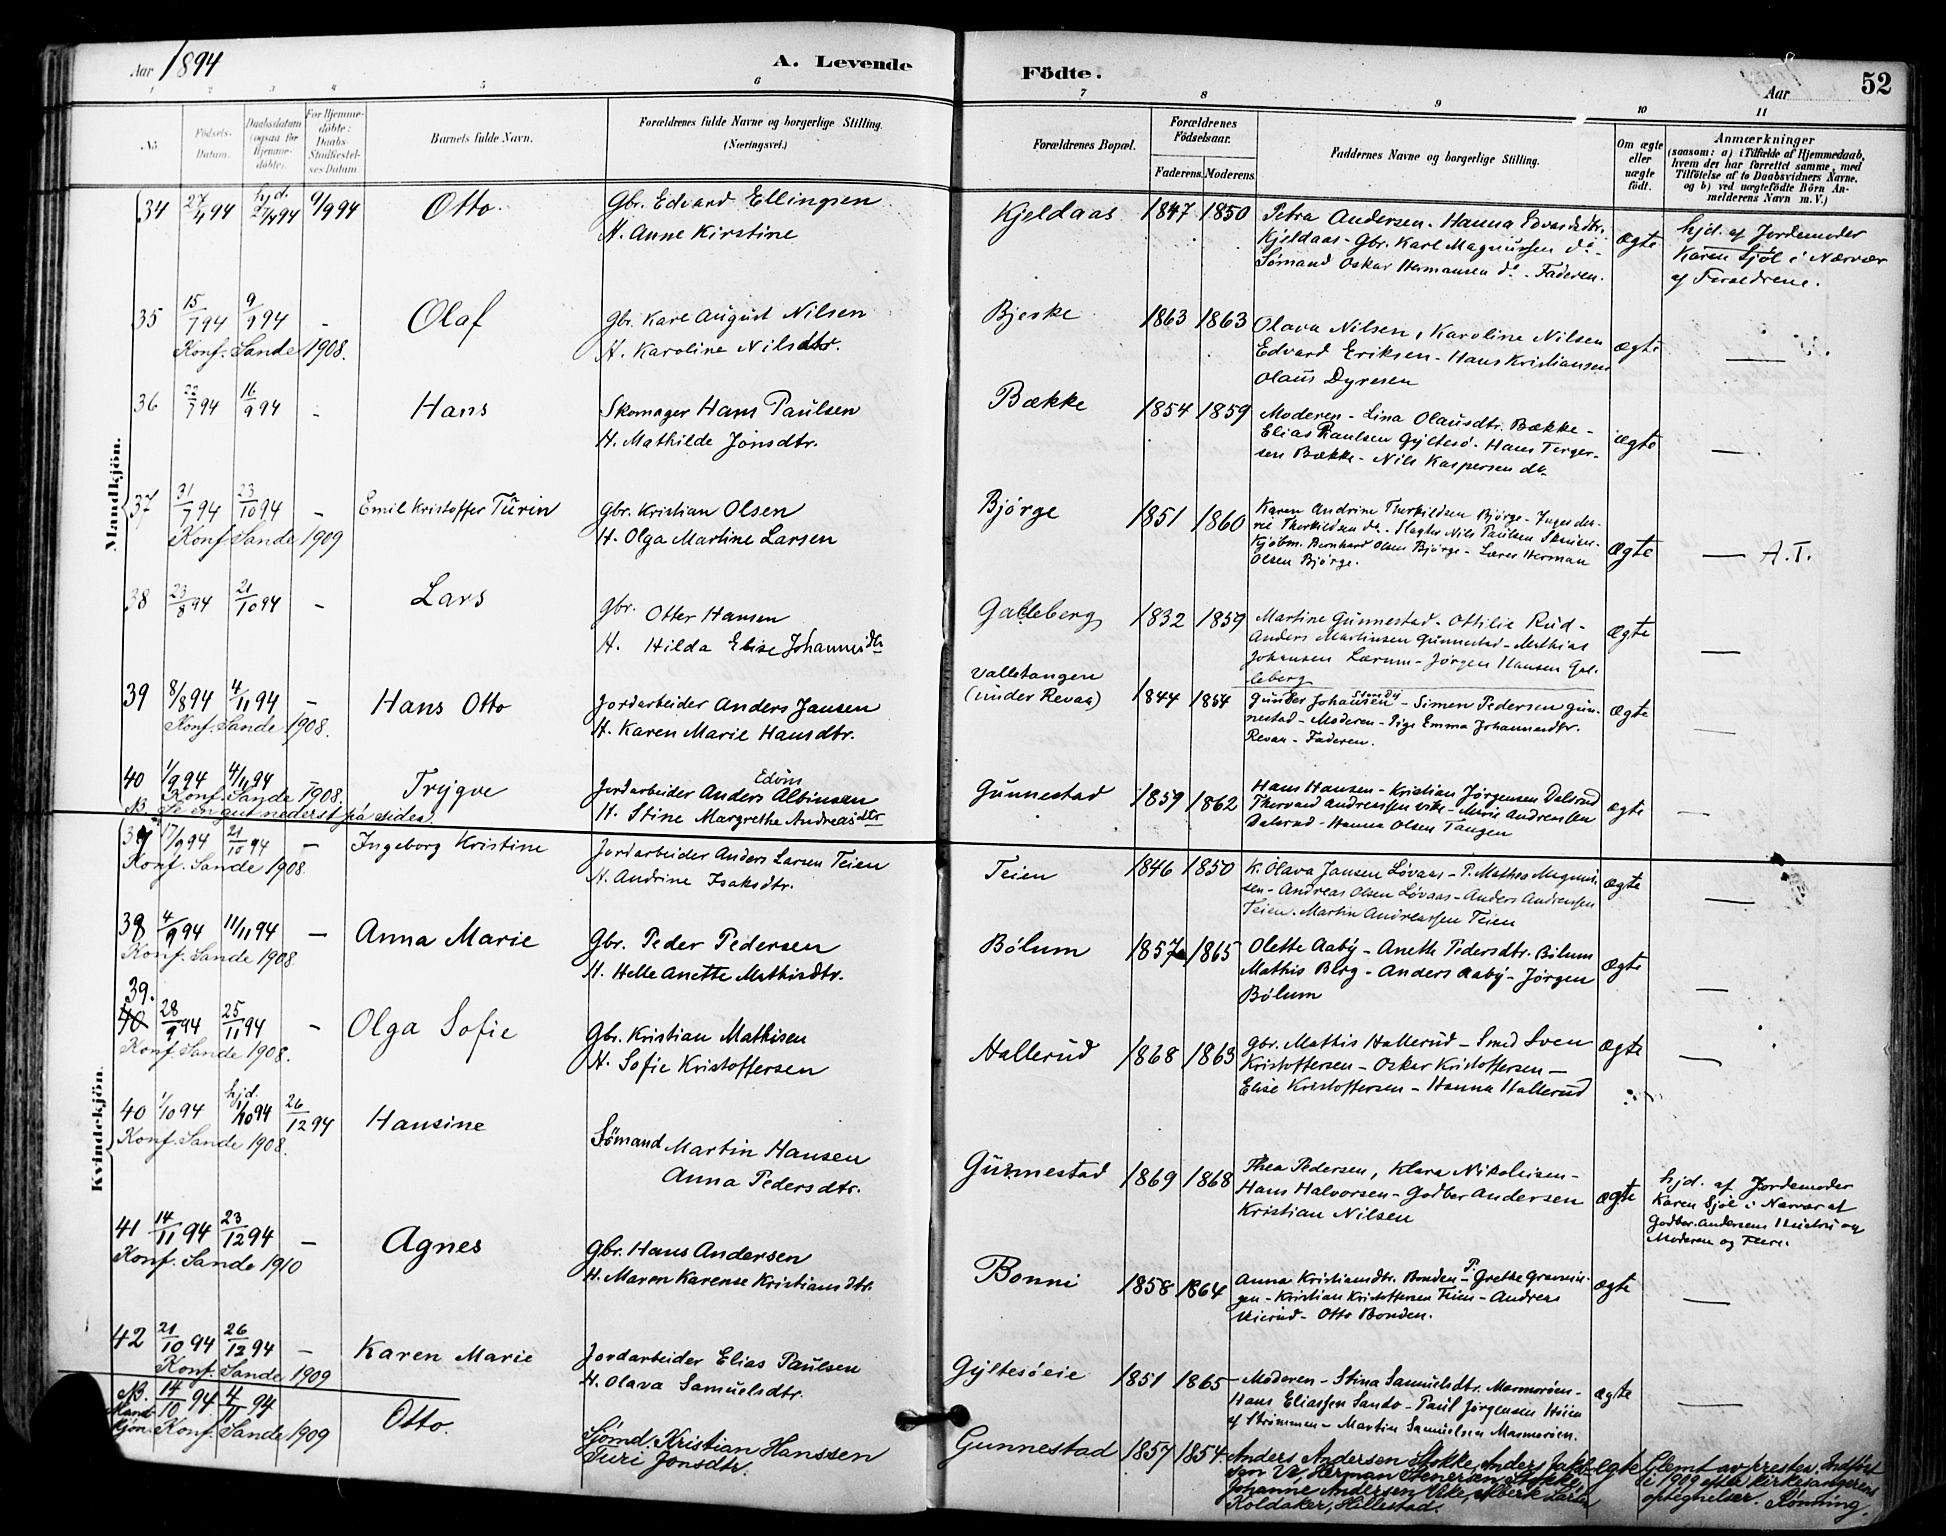 Aar 1894
A. Levende
Födte.
Aar
52
1 2 3 4 5 6 7 8 9 10 11
No
Födsels-Datum.
Daabsdatum (ogsaa for Hjemme-döbte).
For Hjemme-döbte: Daabs-Stadfæstel-ses Datum.
Barnets fulde Navn.
Forældrenes fulde Navne og borgerlige Stilling.
(Næringsvei.)
Forældrenes Bopæl.
Forældrenes Födselsaar.
Faderens. Moderens.
Faddernes Navne og borgerlige Stilling.
Om ægte eller uægte födt.
Anmærkninger
(saasom: a) i Tilfælde af Hjemmedaab,
hvem der har forrettet samme, med
Tilföielse af to Daabsvidners Navne.
og b) ved uægtefödte Börn An-
melderens Navn m. V.)
Mandkjön.
34 27/4 94 hjd. 27/4 94 9/9 94 Otto. Gbr. Edvard Ellingsen Kjeldaas 1847 1850 Petra Andersen - Hanna Edvardsdtr.
H. Anne Kirstine Kjeldaas - Gbr. Karl Magnussen do - ægte
Sømand Oskar Hermansen do. - Faderen.
hjd. af Jordemoder
Karen Sjøl i Nærvær
af Forældrene.
35 15/7 94 9/9 94 - Olaf Gbr. Karl August Nilsen Bjerke 1863 1863 Olava Nilsen, Karoline Nilsen
Konf. Sande 1908. H. Karoline Nilsdtr. Edvard Eriksen - Hans Kristiansen ægte —
Olaus Dyresen
36 22/7 94 16/9 94 - Hans Skomager Hans Paulsen Bække 1854 1859 Moderen - Lina Olausdtr. Bække -
H. Mathilde Jonsdtr. Elias Paulsen Gyltesø. Hans Terger- ægte —
sen Bække - Nils Kaspersen do.
37 31/7 94 23/10 94 - Emil Kristoffer Turin Gbr. Kristian Olsen Bjørge 1851 1860 Karen Andrine Therkildsen Bjørge - Inger An-
Konf Sande 1909 H. Olga Martine Larsen Therkildsen do. - Slagter Nils Paulsen
Kjøbm. Bernhard Olsen Bjørge - Lærer Herman ægte — A. T.
Olsen Bjørge.
38 23/8 94 21/10 94 - Lars Gbr. Otter Hansen Galleberg 1832 1859 Martine Gunnestad - Ottilie Rud -
H. Hilda Elise Johannesdtr Anders Martinsen Gunnestad - Mathias ægte —
Johansen Lærum - Jørgen Hansen Gal-
leberg
39 8/8 94 4/11 94 - Hans Otto Jordarbeider Anders Jansen Valletangen (under Revaa) 1844 1854 Gunder Johansen - Simen Pedersen Gun-
Konf. Sande 1908. H. Karen Marie Hansdtr. nestad - Moderen - Pige Emma Johannesdtr. ægte —
Revaa - Faderen.
40 1/9 94 4/11 94 - Trygve Jordarbeider Anders Edvin Albinsen Gunnestad 1859 1862 Hans Hansen - Kristian Jørgensen Dalsrud
Konf. Sande 1908. H. Stine Margrethe Andreasdtr Thorvard Andreassen Vike - Marie Andreassen ægte —
NB Se en gut nederst på siden. Dalsrud - Hanna Olsen Tangen
Kvindekjön.
37 17/9 94 21/10 94 - Ingeborg Kristine Jordarbeider Anders Larsen Teien Teien 1846 1850 K. Olava Jansen Løvaas - P. Mathea Magnus-
Konf. Sande 1908. H. Andrine Isaksdtr. sen - Andreas Olsen Løvaas - Anders Andreassen ægte —
Teien. Martin Andreassen Teien
38 4/9 94 11/11 94 - Anna Marie Gbr. Peder Pedersen Bölum 1857 1865 Olette Aaby - Aneth Pedersdtr. Bölum
Konf. Sande 1908 H. Helle Anette Mathisdtr. Mathis Berg - Anders Aaby - Jørgen ægte —
Bölum
39. 40 28/9 94 25/11 94 - Olga Sofie Gbr. Kristian Mathisen Hallerud 1868 1863 Gbr. Mathis Hallerud - Smed Sven ægte —
Konf. Sande 1908. H. Sofie Kristoffersen Kristoffersen - Oskar Kristoffersen -
Elise Kristoffersen - Hanna Hallerud
40 1/10 94 hjd. 1/10 94 26/12 94 Hansine Sømand Martin Hansen Gunnestad 1869 1868 Thea Pedersen, Klara Nikolaisen -
Konf. Sande 1908. Anna Pedersdtr. Hans Halvorsen - Godber Andersen ægte
Kristian Nilsen
hjd. af Jordemoder
Karen Sjøl i Nærvær af
Godber Andersens Hustru og
Moderen og Flere.
41 14/11 94 23/12 94 - Agnes Gbr. Hans Andersen Bonni 1858 1864 Anna Kristiansdtr. Bonden - P. Grethe Gravnin-
Konf. Sande 1910 H. Maren Karense Kristiansdtr. gen - Kristian Kristoffersen Teien - Andreas ægte —
Otto Bonden.
42 21/10 94 26/12 94 - Karen Marie Jordarbeider Elias Paulsen Gyltesöeie 1851 1865 Moderen - Stina Samuelsdtr. Marmorøen -
Konf. Sande 1909 H. Olava Samuelsdtr. Hans Eliassen Sando - Paul Jørgensen Høien ægte —
af Strømmen - Martin Samuelsen Marmorøen.
NB. Mand kjön. 14/10 94 4/11 94 Otto. Sjömd. Kristian Hanssen Gunnestad 1857 1854. Anders Andersen Stokke, Anders Jakob- ægte
Konf. Sande 1909 Turi Jonsdtr. sen Ve, Herman Stenersen Stokke,
Johanne Andersen Vike, Alberte Larsen
Koldaker, Hillestad.
Glemt av presten. Indført
i 1909 efter kirkesangerens
optegnelser. Rønning.